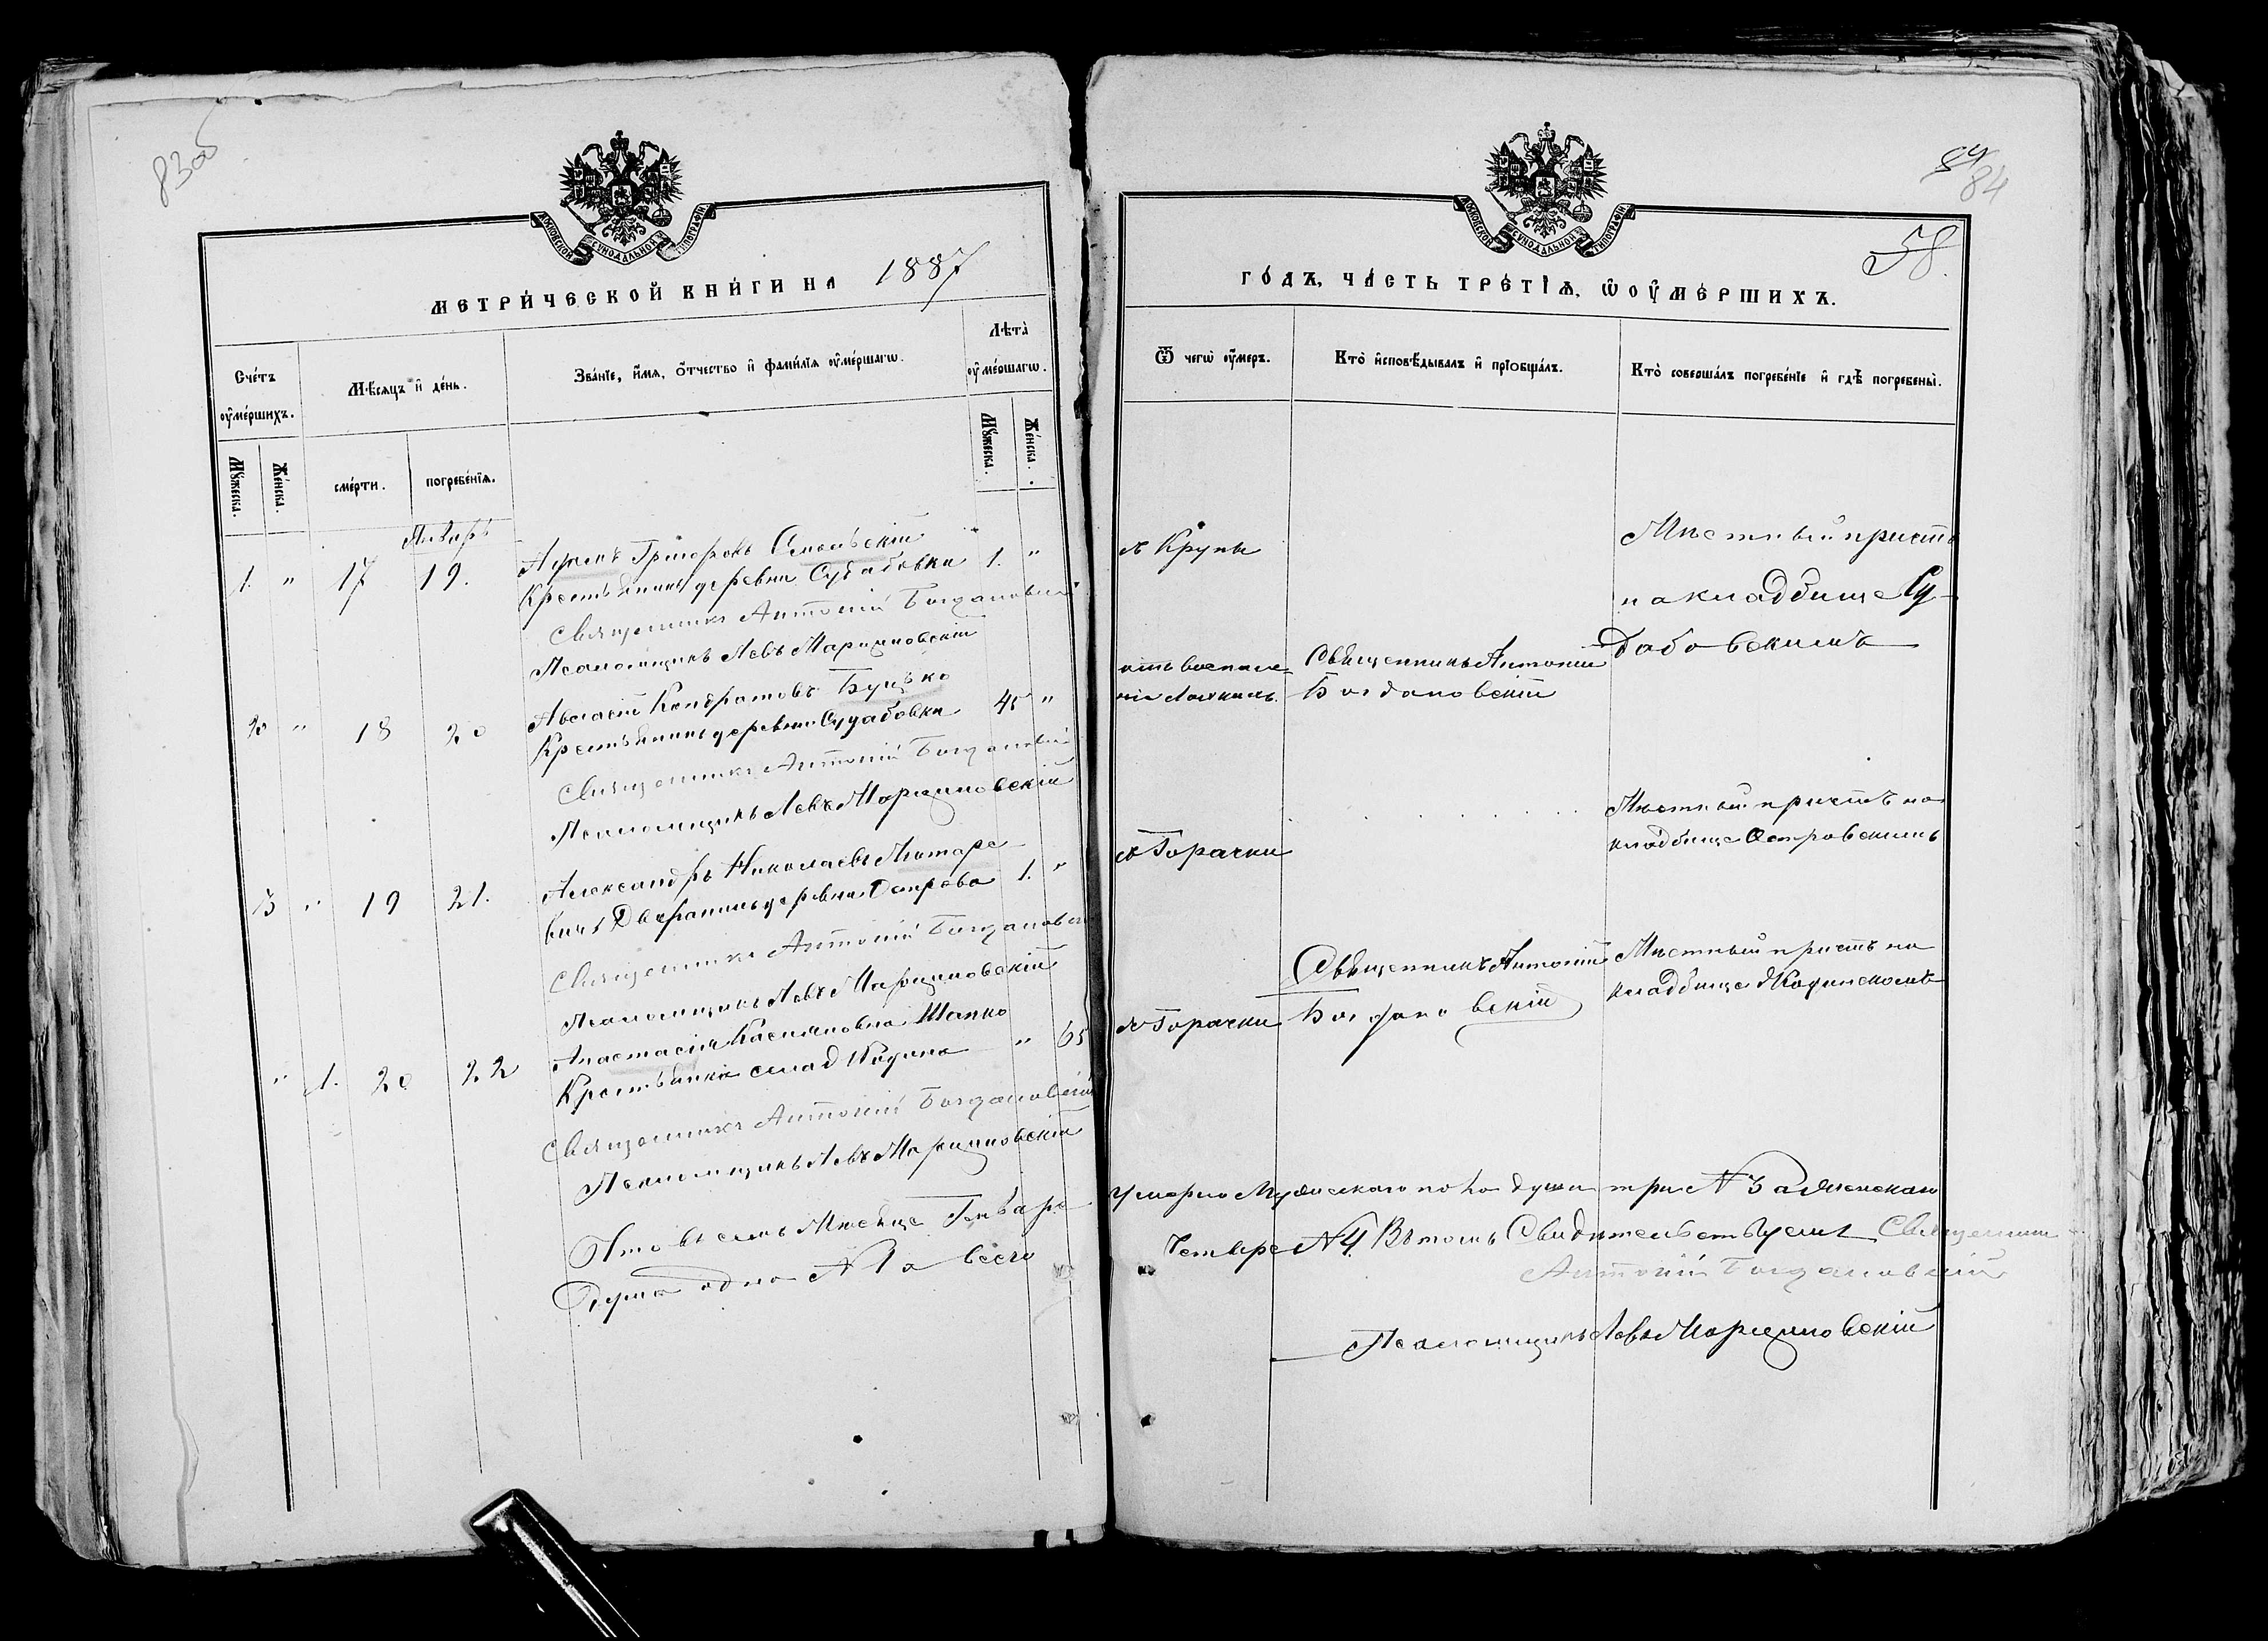 83об
МОСКОВСКОЙ СѴНОДАЛЬНОЙ ТИПОГРАФІИ
МЕТРИ́ЧЕСКОЙ КНИ́ГИ НА 1887
Сче́тъ оу҆ме́ршихъ.
Мѣ́сяцъ и҆ де́нь.
Зва́нїе, и҆́мѧ, ѻ҆́тчество и҆ фами́лїѧ оу҆ме́ршагѡ.
Лѣта̀ оу҆ме́ршагѡ.
Мꙋ́жеска.
Же́нска.
сме́рти.
погребе́нїѧ.
Мꙋ́жеска.
Же́нска.
Январь
1. " 17 19.
Крестьянинъ деревни Судабовки 1. "
Священникъ Антоній Богдановскій
Псаломщикъ Левъ Марциновскій
2 " 18 20
Кондратовъ Буцько
Крестьянинъ деревни Судабовки 45 "
Священникъ Антоній Богдановскій
Псаломщикъ Левъ Марциновскій
3 " 19 21.
Александръ Николаевъ Нитаре-
вичъ Дворянинъ деревни Острова 1. "
Священникъ Антоній Богдановскій
Псаломщикъ Левъ Марциновскій
" 1. 20 22
Анастасія Касьяновна Шапко
Крестьянка " 65
Священникъ Антоній Богдановскій
Псаломщикъ Левъ Марциновскій
Итого въ семъ Мѣсяце Генваре
Душа одна N 1 а всего
84
84
58.
МОСКОВСКОЙ СѴНОДАЛЬНОЙ ТИПОГРАФІИ
ГО́ДЪ, ЧА́СТЬ ТРЕ́ТЇѦ, Ѡ҆ ОУ҆МЕ́РШИХЪ.
Ѿ чегѡ̀ оу҆́меръ.
Кто̀ и҆сповѣ́дывалъ и҆ прїѡбща́лъ.
Кто̀ соверша́лъ погребе́нїе и҆ гдѣ̀ погребены̀.
Крупы
Мѣстный причтъ
на кладбище Су-
дабовскимъ
отъ воспале-
нія
Священникъ Антоній
Богдановскій
Горячки
Мѣстный причтъ на
кладбище Островскимъ
Горячки
Священникъ Антоній
Богдановскій
Мѣстный причтъ на
кладбище
Умерло Мужескаго пола души три N 3 а Женскаго
Четыре N 4. Въ томъ Свидѣтельствуемъ Священникъ
Антоній Богдановскій
Псаломщикъ Левъ Марциновскій